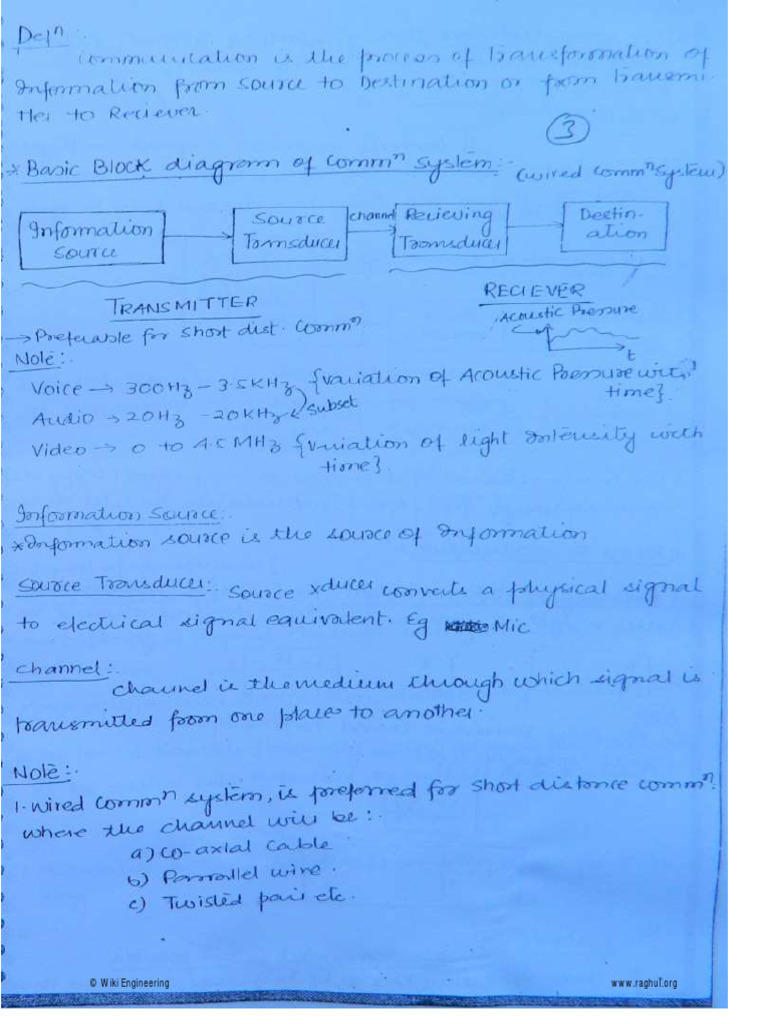 Defn:
Communication is the process of transformation of
Information from source to Destination or from transmi-
tter to Reciever.
3
* Basic Block diagram of commn system:- (wired commn system)
Information Source
Source Transducer
channel
Recieving Transducer
Destin-ation
TRANSMITTER
RECIEVER
Acoustic Pressure
t
→ Preferable for short dist. Commn
Note:-
Voice → 300Hz – 3.5KHz {variation of Acoustic Pressure with
time}.
Audio → 20Hz – 20KHz subset
Video → 0 to 4.5 MHz {variation of light Intensity with
time}.
Information Source:-
* Information source is the source of Information
Source Transducer:- Source xducer converts a physical signal
to electrical signal equivalent. Eg Mic
channel:-
channel is the medium through which signal is
transmitted from one place to another.
Note:-
1. Wired commn system, is preferred for short distance commn.
where the channel will be:-
a) co-axial cable
b) Parrallel wire.
c) Twisted pair etc.
© Wiki Engineering
www.raghul.org